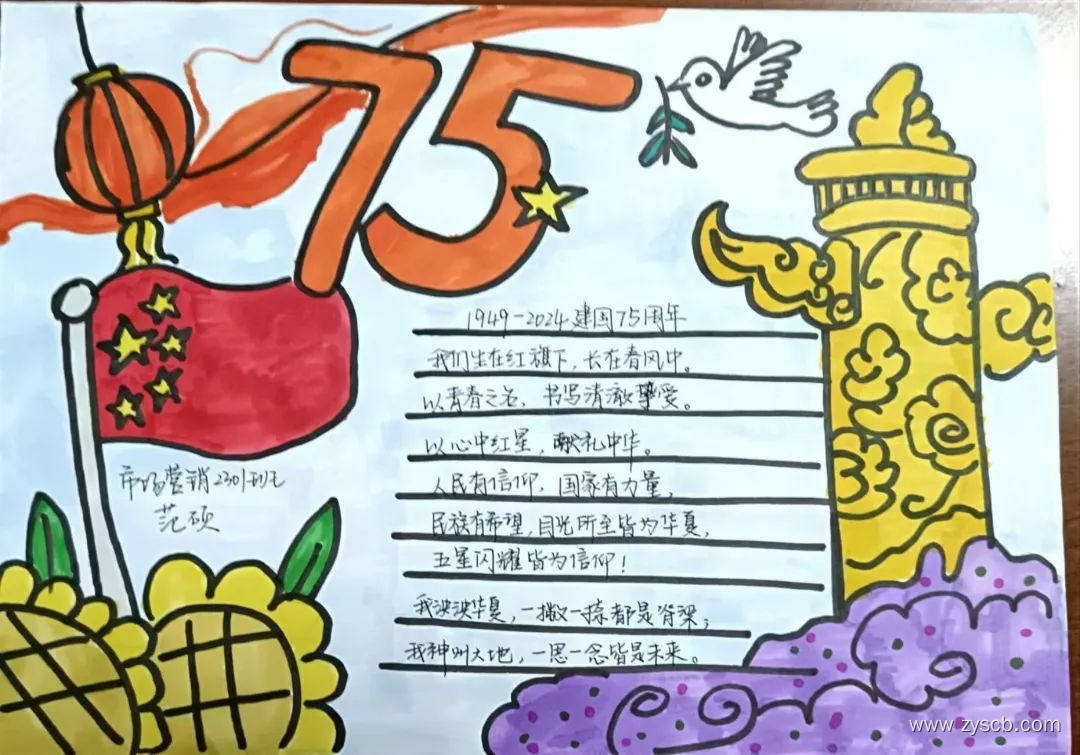 75
1949-2024建国75周年
我们生在红旗下，长在春风中。
以青春之名，书写清澈挚爱。
以心中红星，献礼中华。
人民有信仰，国家有力量，
民族有希望，目光所至皆为华夏，
五星闪耀皆为信仰！
我泱泱华夏，一撇一捺都是脊梁；
我神州大地，一思一念皆是未来。
市场营销2301班
范硕
www.zyscb.com